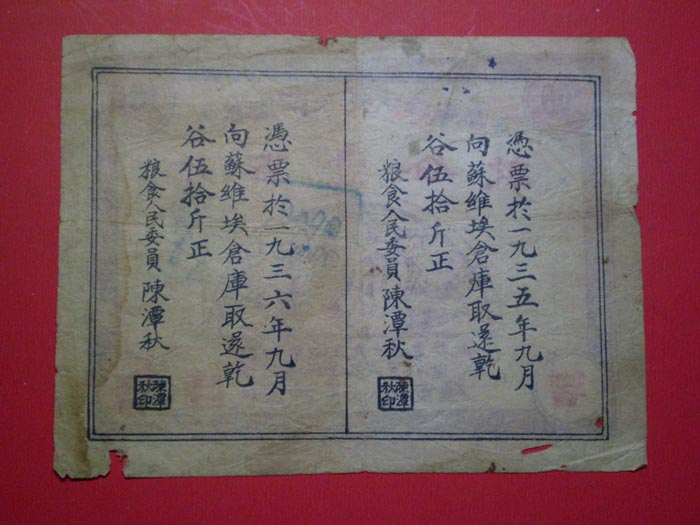 憑票於一九三五年九月
向蘇維埃倉庫取還乾
谷伍拾斤正
粮食人民委員 陳潭秋
陳潭秋印
憑票於一九三六年九月
向蘇維埃倉庫取還乾
谷伍拾斤正
粮食人民委員 陳潭秋
陳潭秋印